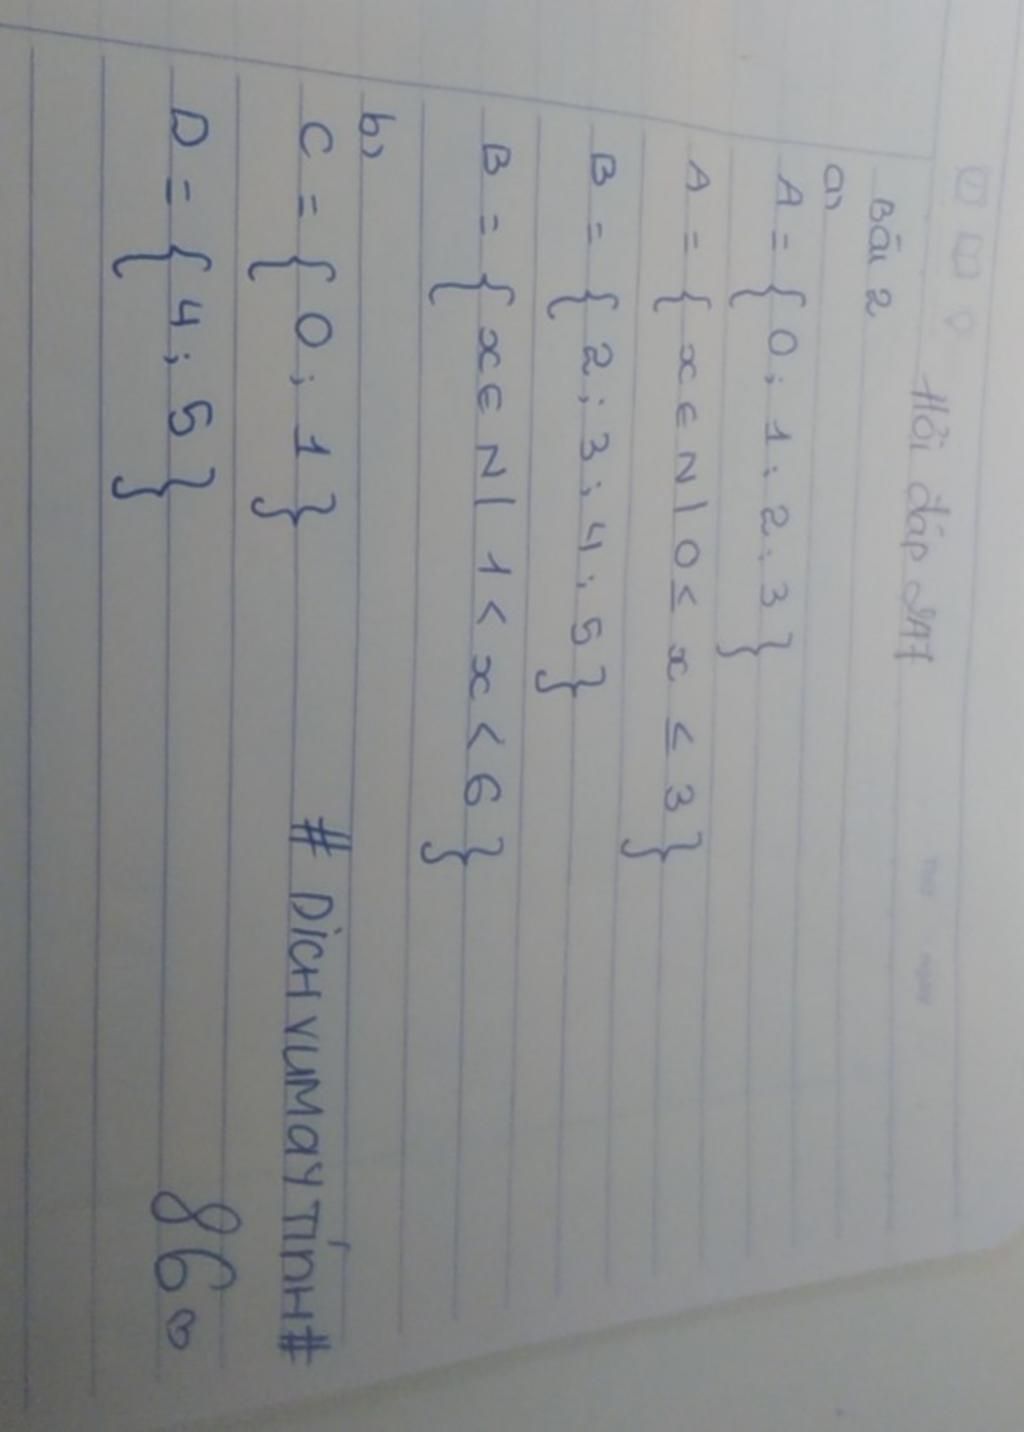 Hỏi đáp 247
Bài 2
a)
A = { 0 ; 1 ; 2 ; 3 }
A = { x ∈ N | 0 ≤ x ≤ 3 }
B = { 2 ; 3 ; 4 ; 5 }
B = { x ∈ N | 1 < x < 6 }
b)
C = { 0 ; 1 }
# DỊCH VUMAYTÍNH#
D = { 4 ; 5 }